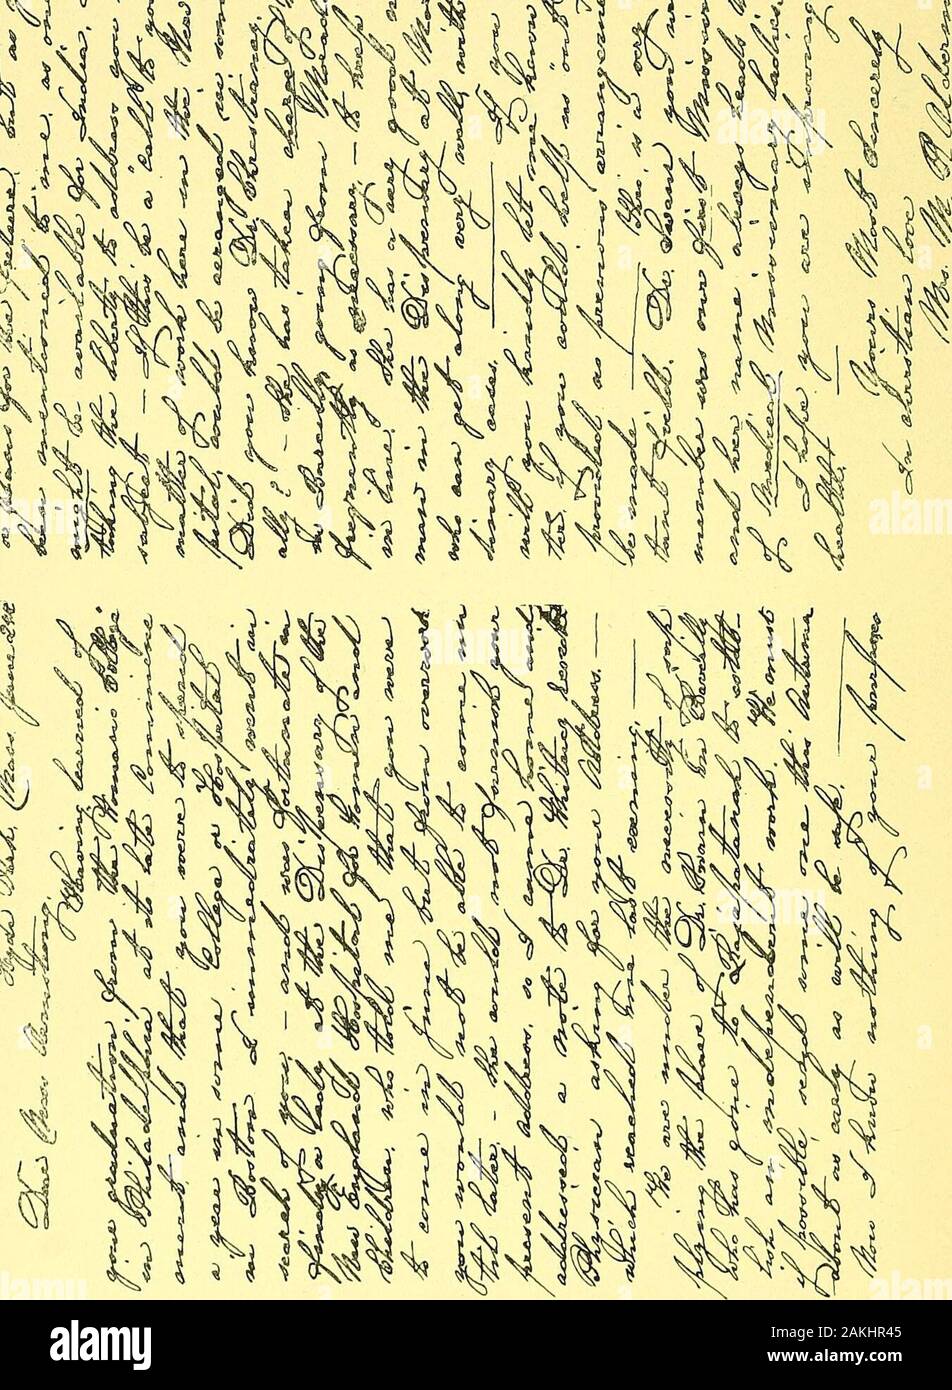 Hyde Park, Mass. June 24
Dear Miss Armstrong,
Having learned of
your graduation from the Womans College
in Philadelphia at its late Commence
ment, and that you were to spend
a year in some College or Hospital
in Boston I immediately went in
search of you, – and was fortunate in
finding a lady at the Dispensary of the
New England Hospital for Women and
Children, who told me that you were
to come in June but from overwork
you would not be able to come in
till later – she could not furnish your
present address, so I came home and
addressed a note to Dr. Whiting, Resident
Physician asking for your Address. —
Which reached me last evening. —
We are under the necessity of sup
plying the place of Dr. Swain in Bareilly
who has gone to Rajpootanah to estab-
lish an independent work. We must
if possible send some one this Autumn
about as early as will be safe. —
Now I know nothing of your purposes
or plans for the future, but as
has mentioned to me, as one
might be available for India,
taking the liberty to address you
subject – If this be a call to you
matter of work here in the New
pital, could be arranged in som
Did you know Dr. Swain
ally? – She has taken charge of
in Bareilly, going from Morad
frequently as necessary, – to keep
in line. She has a very good
man in the Dispensary at Mor
who can get along very well, with
dinary cases. — If you
will you kindly let me know
ther, if you could help us out
provided as previous arrangeme
be made — This is a very
tant field. Dr. Swain you
member was our first Missionary
and her name always heads
of Medical Missionary ladies
I hope you are improving
health. —
Yours Most Sincerely
In christian love
Mrs. Wm. B
alamy
Image ID: 2AKHR45
www.alamy.com